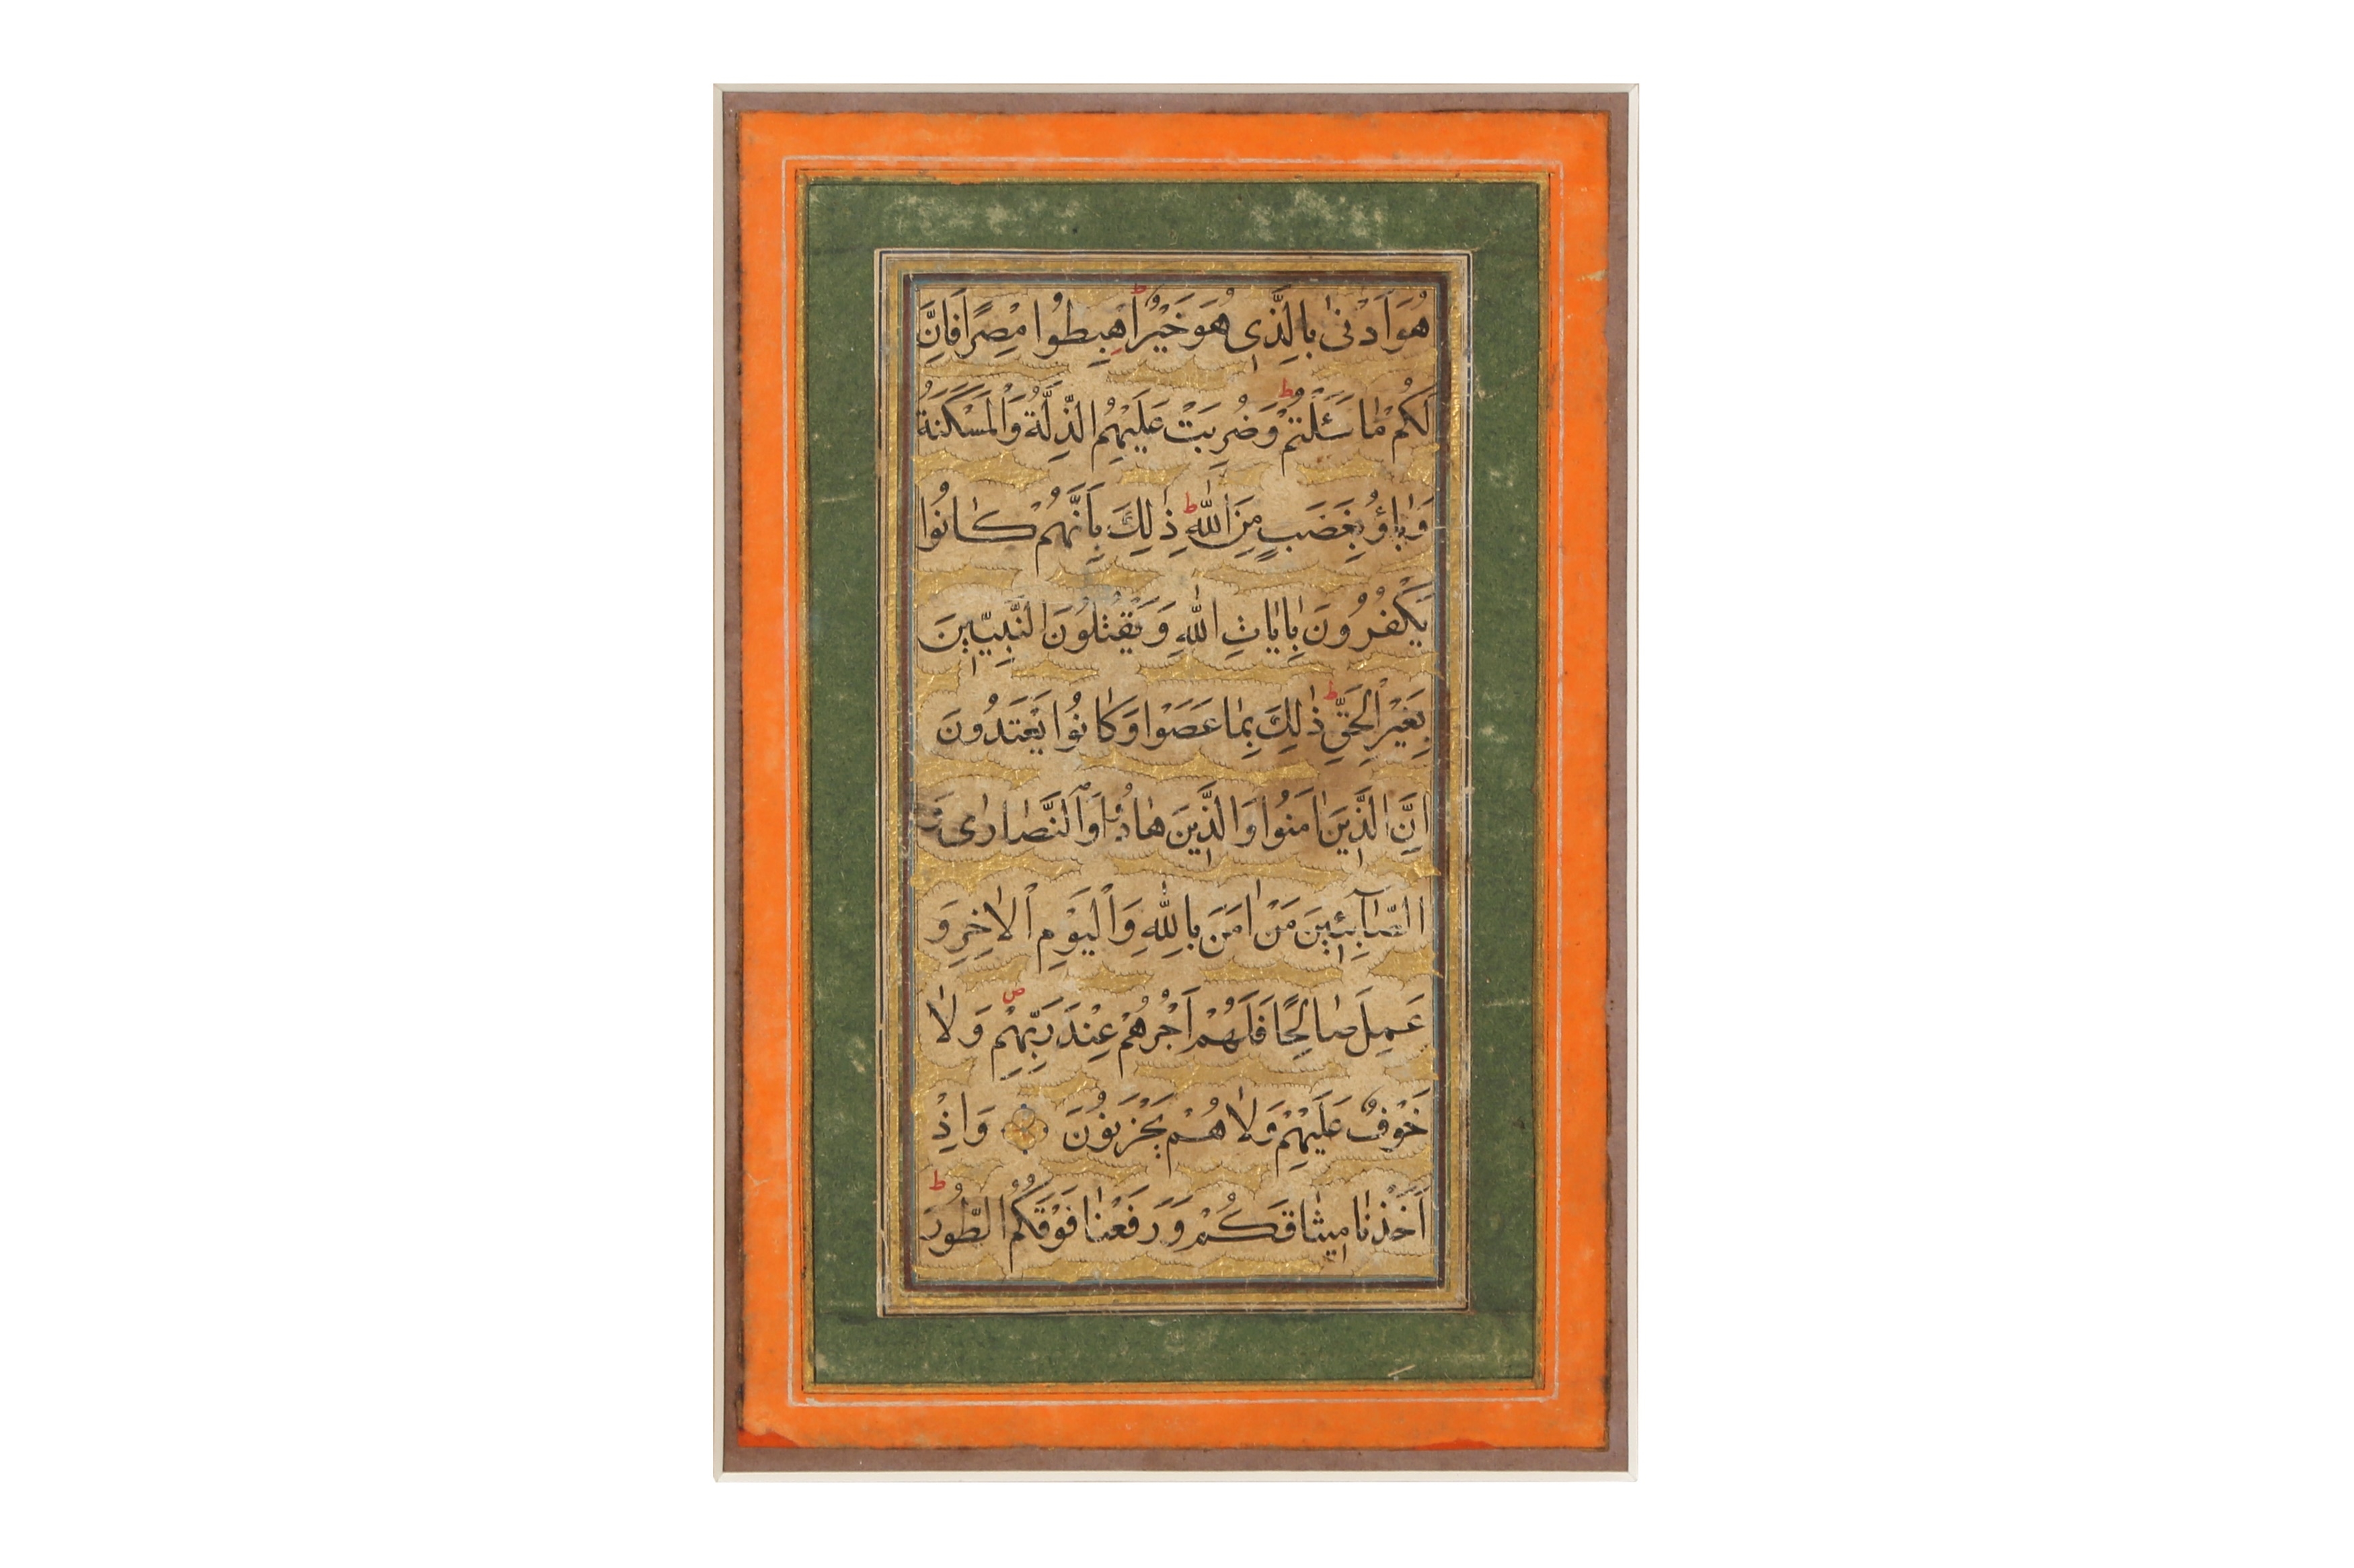 هُوَ اَدْنٰى بِالَّذِى هُوَ خَيْرٌ ط اِهْبِطُوا مِصْرًا فَاِنَّ
لَكُمْ مٰا سَئَلْتُمْ ط وَ ضُرِبَتْ عَلَيْهِمُ الذِّلَّةُ وَالْمَسْكَنَةُ
وَ بٰاؤُ بِغَضَبٍ مِنَ اللّٰهِ ط ذٰلِكَ بِاَنَّهُمْ كٰانُوا
يَكْفُرُونَ بِاٰيٰاتِ اللّٰهِ وَ يَقْتُلُونَ النَّبِيّٖينَ
بِغَيْرِ الْحَقِّ ط ذٰلِكَ بِمٰا عَصَوْا وَ كٰانُوا يَعْتَدُونَ
اِنَّ الَّذٖينَ اٰمَنُوا وَ الَّذٖينَ هٰادُوا وَ النَّصٰارٰى وَ
الصّٰآبِئٖينَ مَنْ اٰمَنَ بِاللّٰهِ وَ الْيَوْمِ الْاٰخِرِ وَ
عَمِلَ صٰالِحًا فَلَهُمْ اَجْرُهُمْ عِنْدَ رَبِّهِمْ ص وَ لٰا
خَوْفٌ عَلَيْهِمْ وَ لٰا هُمْ يَحْزَنُونَ وَ اِذْ
اَخَذْنٰا مٖيثٰاقَكُمْ وَ رَفَعْنٰا فَوْقَكُمُ الطُّورَ ط